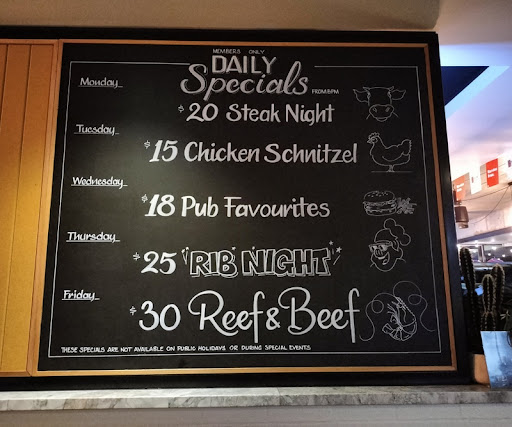 MEMBERS ONLY
DAILY
Specials
FROM 6PM
Monday
$20 Steak Night
Tuesday
$15 Chicken Schnitzel
Wednesday
$18 Pub Favourites
Thursday
$25 "RIB NIGHT"
Friday
$30 Reef & Beef
THESE SPECIALS ARE NOT AVAILABLE ON PUBLIC HOLIDAYS OR DURING SPECIAL EVENTS